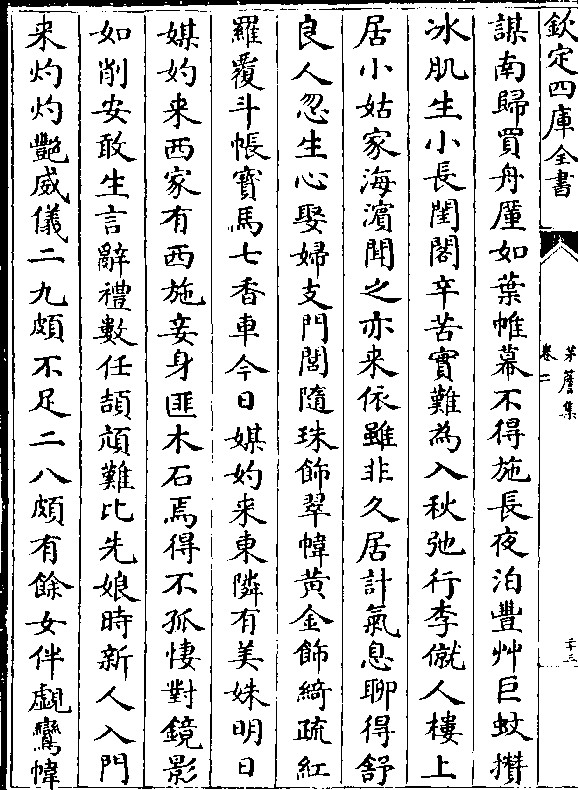 欽定四庫全書
茅簷集
卷二
二十三
謀南歸買舟厪如葉帷幕不得施長夜泊豐艸巨蚊攢
冰肌生小長閨閤辛苦實難為入秋弛行李僦人樓上
居小姑家海濵聞之亦来依雖非久居計氣息聊得舒
良人忽生心娶婦支門閭隨珠飾翠幃黃金飾綺疏紅
羅覆斗帳寳馬七香車今日媒妁来東隣有美姝明日
媒妁来西家有西施妾身匪木石焉得不孤悽對鏡影
如削安敢生言辭禮數任頡頏難比先娘時新人入門
来灼灼豔威儀二九頗不足二八頗有餘女伴覷鸞幃